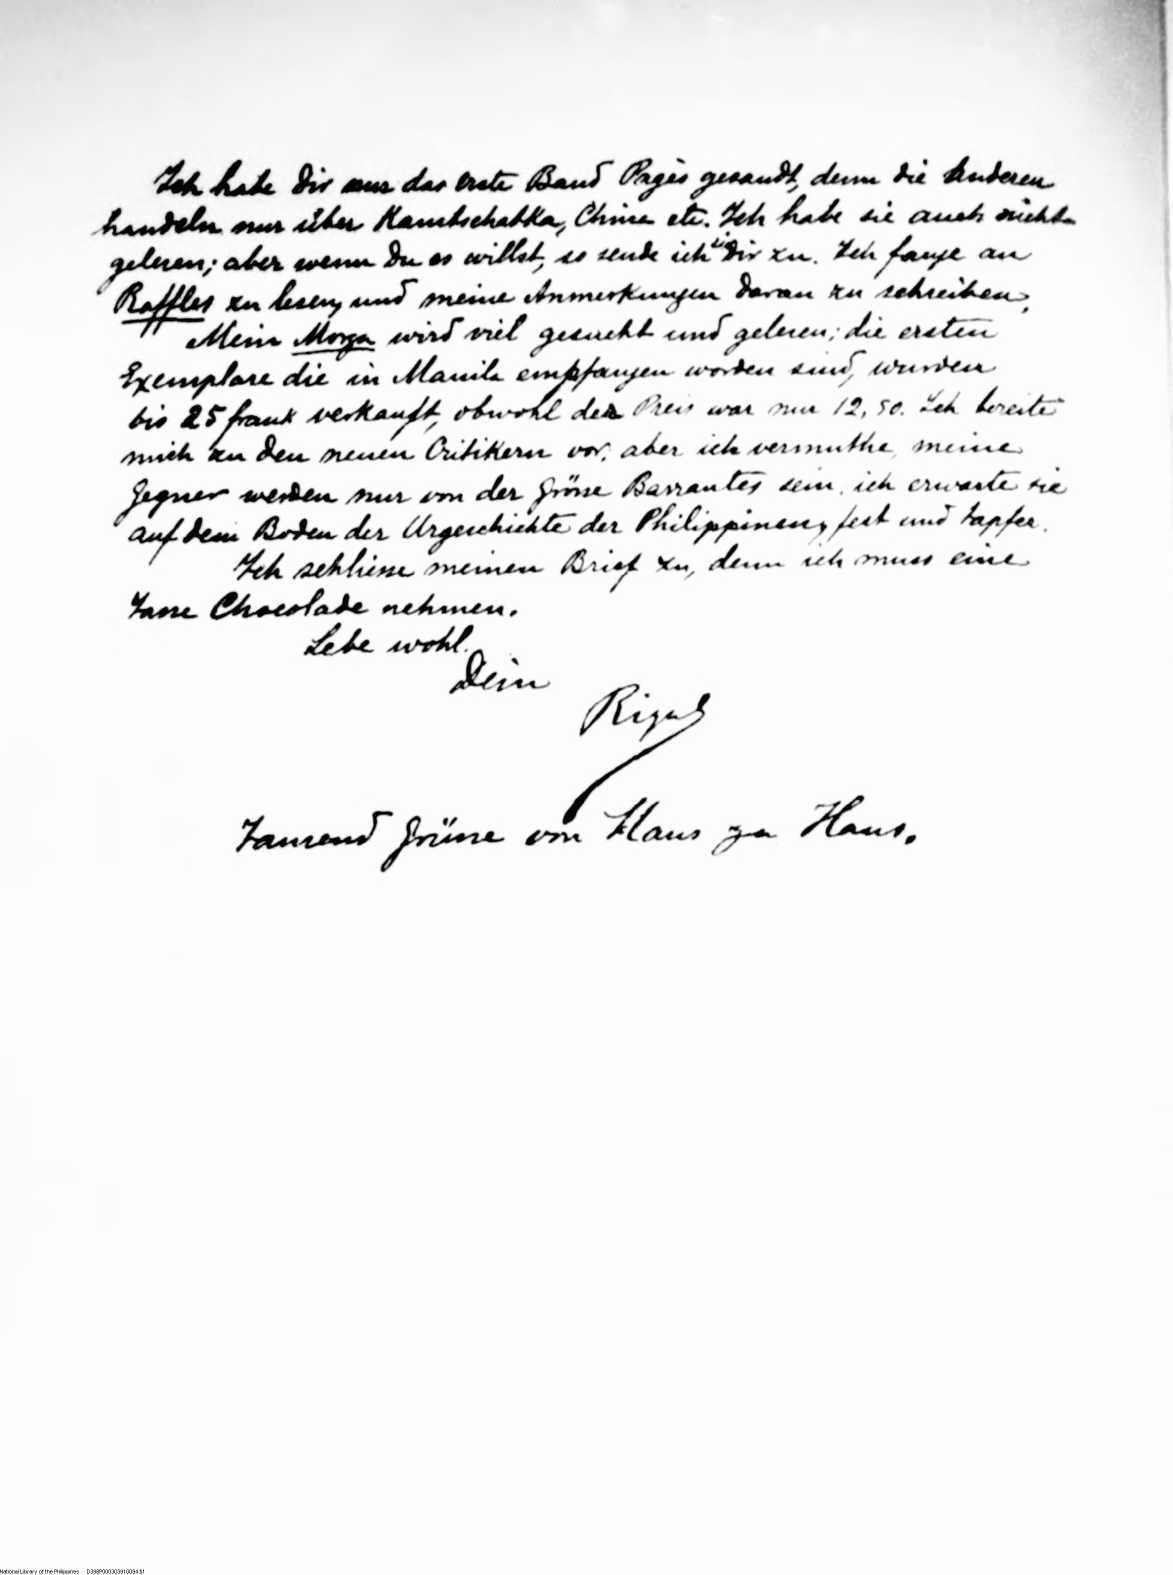 Ich habe Dir nur das erste Band Pagès gesandt, denn die Anderen
handeln nur über Kamtschatka, China etc. Ich habe sie auch nicht
gelesen; aber wenn Du es willst, so sende ich sie Dir zu. Ich fange an
Raffles zu lesen, und meine Anmerkungen daran zu schreiben.
Mein Morga wird viel gesucht und gelesen; die ersten
Exemplare die in Manila empfangen worden sind, wurden
bis 25 frank verkauft, obwohl der Preis war nur 12,50. Ich bereite
mich zu den neuen Critikern vor, aber ich vermuthe, meine
Gegner werden nur von der Grösse Barrantes sein. ich erwarte sie
auf dem Boden der Urgeschichte der Philippinen, fest und tapfer.
Ich schliesse meinen Brief zu, denn ich muss eine
Tasse Chocolade nehmen.
Lebe wohl.
Dein
Rizal
Tausend Grüsse von Haus zu Haus.
National Library of the Philippines D398P0003039100941